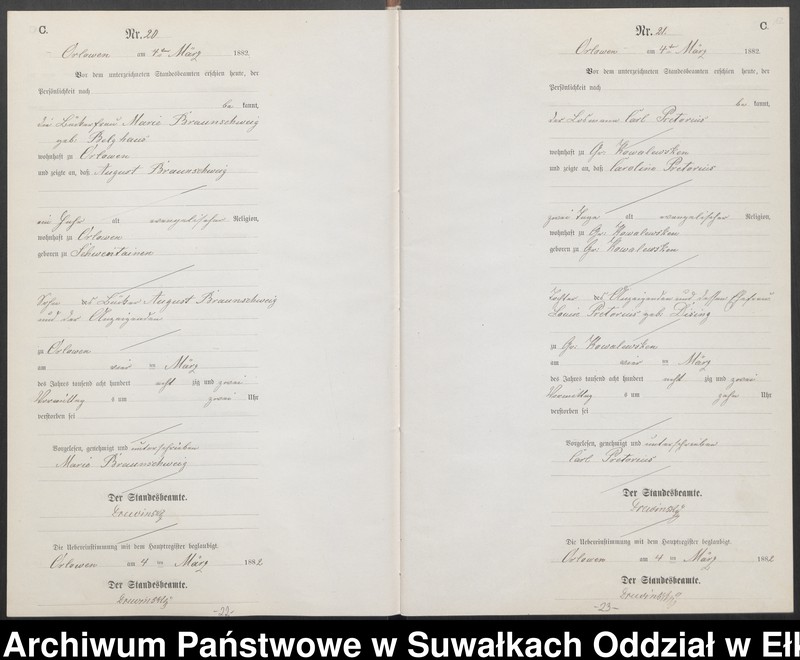 C.
Nr. 20
Orlowen am 4ten März 1882.
Vor dem unterzeichneten Standesbeamten erschien heute, der
Persönlichkeit nach
be kannt,
die Bäckerfrau Marie Braunschweig
geb. Belghaus
wohnhaft zu Orlowen
und zeigte an, daß August Braunschweig
ein Jahr alt evangelischer Religion,
wohnhaft zu Orlowen
geboren zu Schwentainen
Sohn des Bäcker August Braunschweig
und der Anzeigenden
zu Orlowen
am vier ten März
des Jahres tausend acht hundert acht zig und zwei
Vormittag s um zwei Uhr
verstorben sei
Vorgelesen, genehmigt und unterschrieben
Marie Braunschweig
Der Standesbeamte.
Die Uebereinstimmung mit dem Hauptregister beglaubigt.
Orlowen am 4 ten März 1882
Der Standesbeamte.
-22-
C.
Nr. 21.
Orlowen am 4ten März 1882.
Vor dem unterzeichneten Standesbeamten erschien heute, der
Persönlichkeit nach
be kannt,
der Losmann Carl Pretorius
wohnhaft zu Gr. Kowalewsken
und zeigte an, daß Caroline Pretorius
zwei Tage alt evangelischer Religion,
wohnhaft zu Gr. Kowalewsken
geboren zu Gr. Kowalewsken
Tochter des Anzeigenden und dessen Ehefrau
Louise Pretorius geb.
zu Gr. Kowalewsken
am vier ten März
des Jahres tausend acht hundert acht zig und zwei
Vormittag s um zehn Uhr
verstorben sei
Vorgelesen, genehmigt und unterschrieben
Carl Pretorius
Der Standesbeamte.
Die Uebereinstimmung mit dem Hauptregister beglaubigt.
Orlowen am 4 ten März 1882
Der Standesbeamte.
-23-
Archiwum Państwowe w Suwałkach Oddział w Ełk